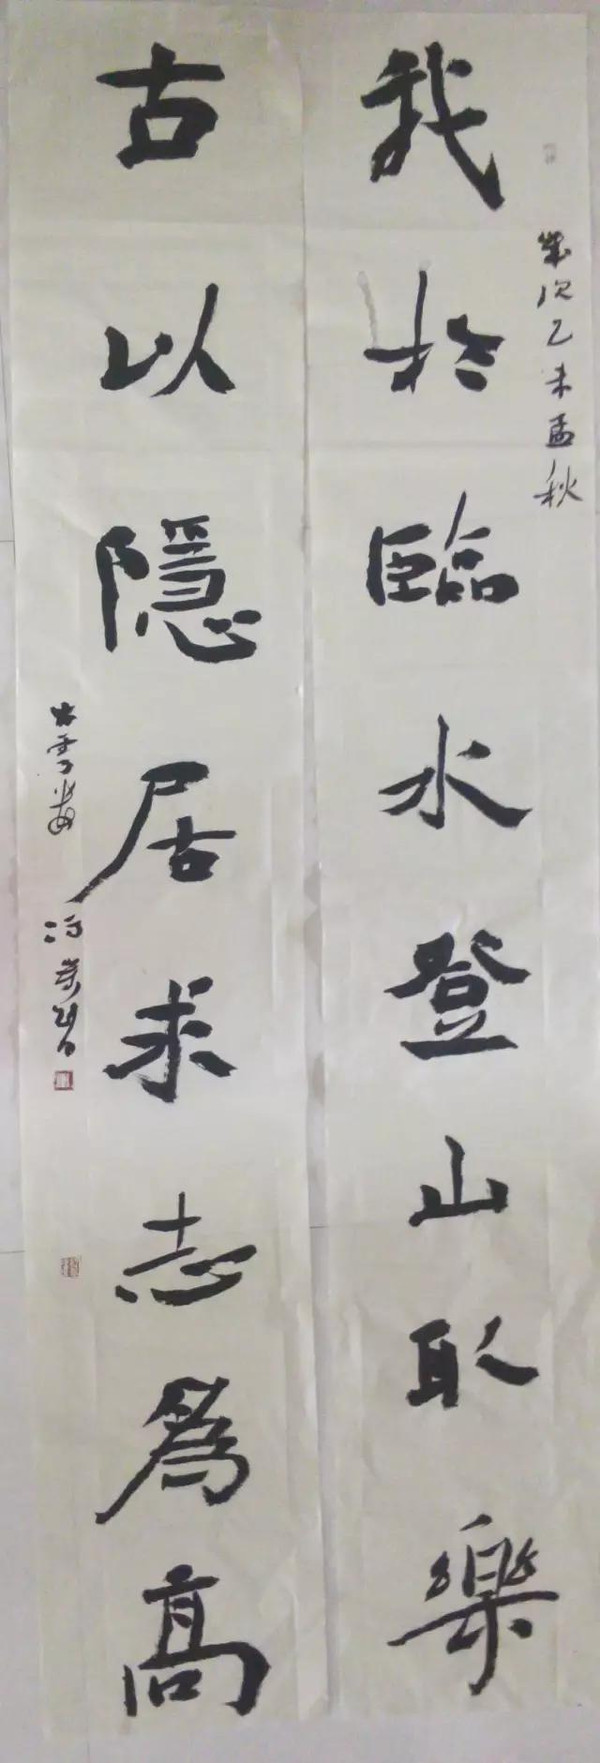 我於臨水登山取樂
歲次乙未孟秋
古以隱居求志為高